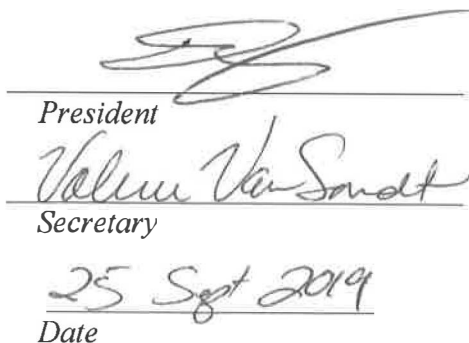 President
Valerie VanSandt
Secretary
25 Sept 2019
Date